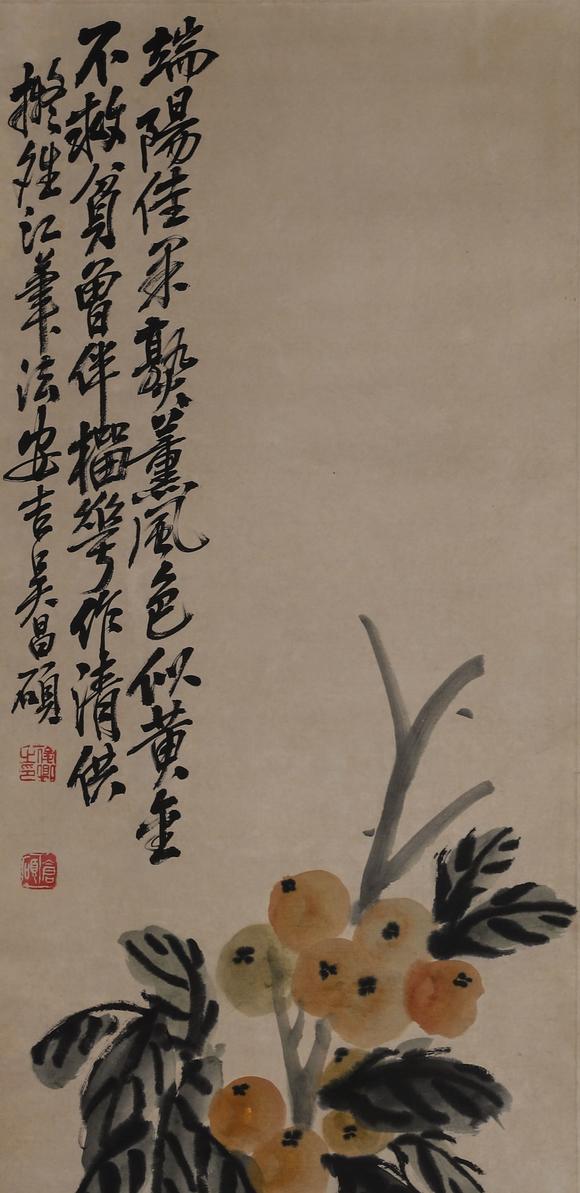 端陽佳果熟薰風色似黃金
不救貧曾伴榴花作清供
擬雒江筆法安吉吳昌碩
倉碩